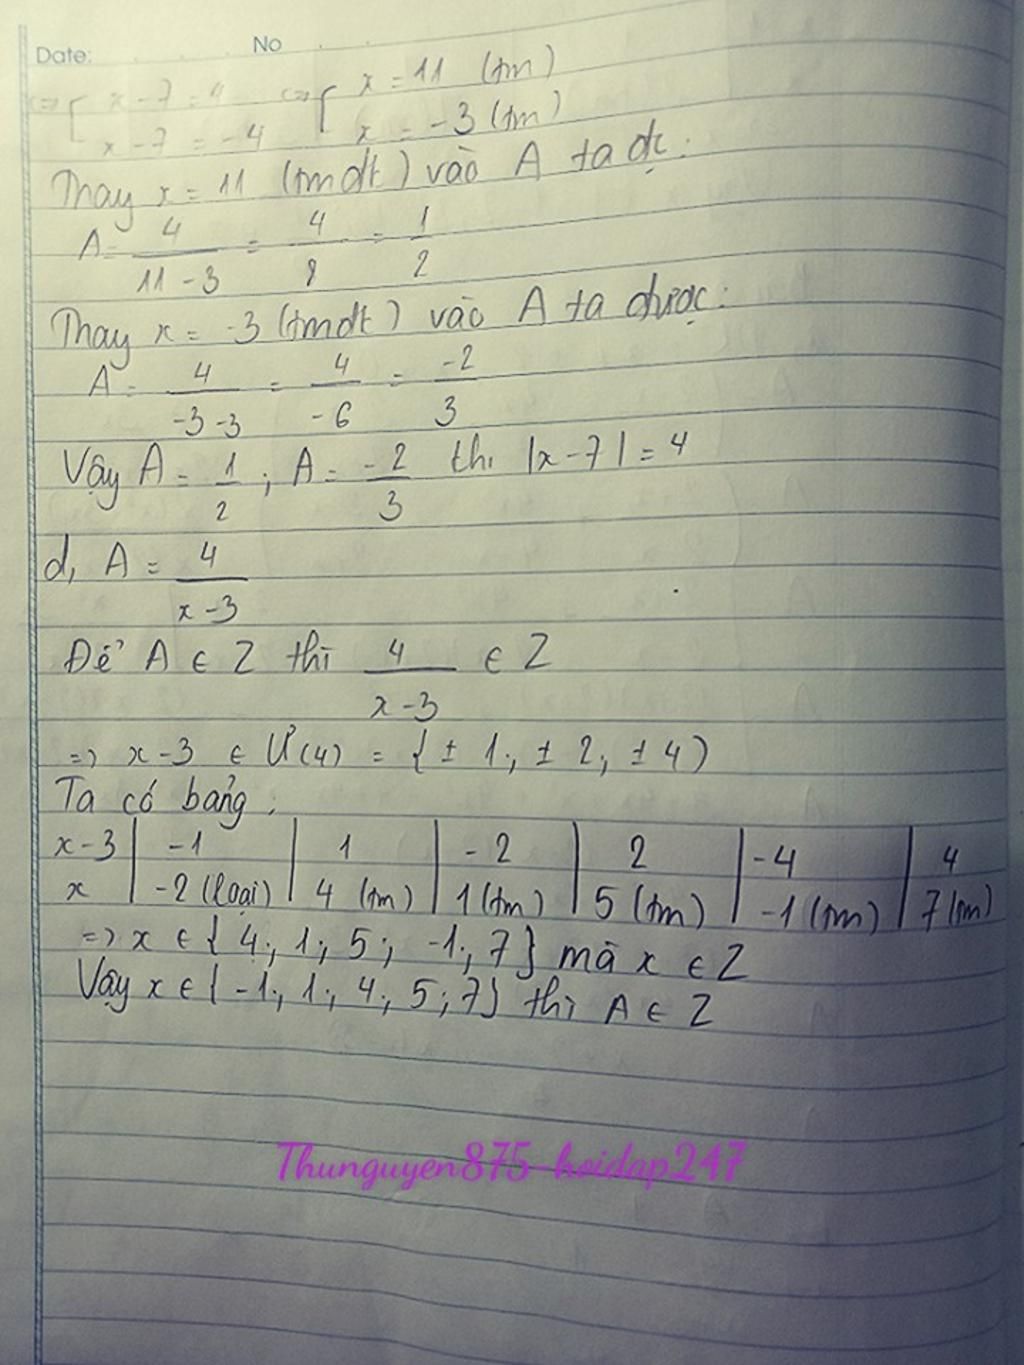 Date: No
<=> [ x - 7 = 4 <=> [ x = 11 (tm)
x - 7 = -4 x = -3 (tm)
Thay x = 11 (tmđk) vào A ta đc:
A = 4/(11 - 3) = 4/8 = 1/2
Thay x = -3 (tmđk) vào A ta được:
A = 4/(-3 -3) = 4/-6 = -2/3
Vậy A = 1/2 ; A = -2/3 thì |x - 7| = 4
d, A = 4/(x - 3)
Để A ∈ Z thì 4/(x - 3) ∈ Z
=> x - 3 ∈ Ư(4) = { ± 1; ± 2; ± 4 }
Ta có bảng:
x - 3 | -1 | 1 | -2 | 2 | -4 | 4
x | -2 (loại) | 4 (tm) | 1 (tm) | 5 (tm) | -1 (tm) | 7 (tm)
=> x ∈ { 4; 1; 5; -1; 7 } mà x ∈ Z
Vậy x ∈ { -1; 1; 4; 5; 7 } thì A ∈ Z
Thunguyen875-hoidap247